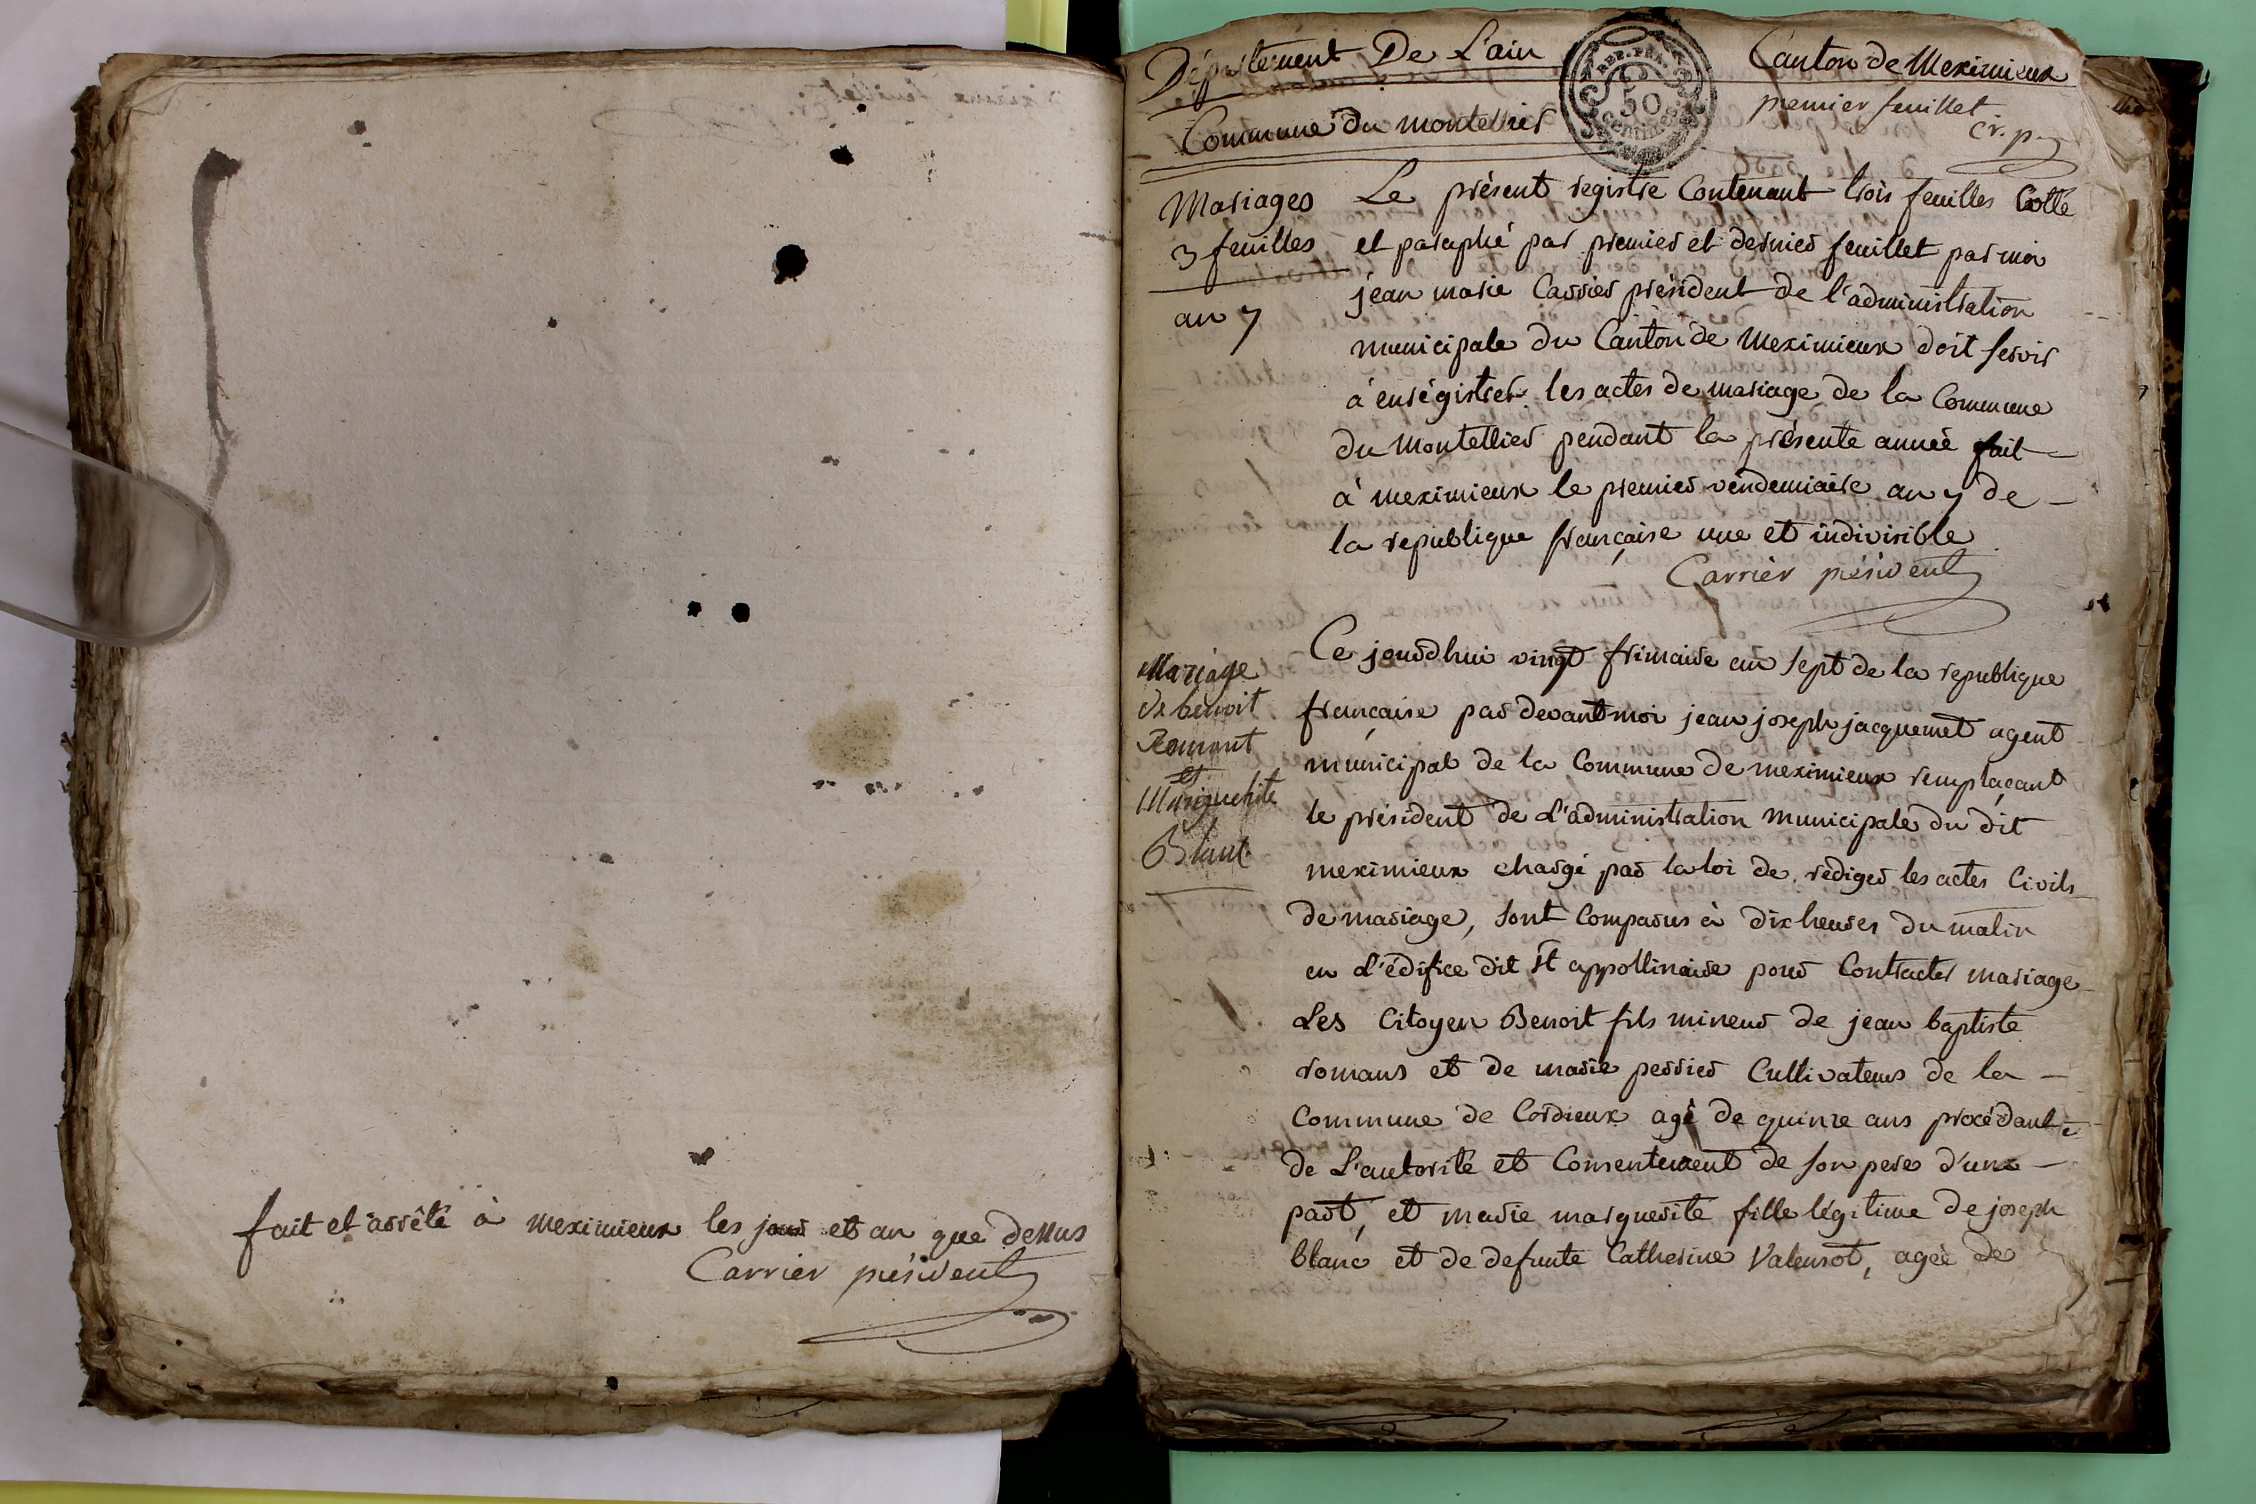 fait et arrêté à meximieux les jour et an que dessus
Carrier président
Département De L'ain
Commune du montellier
REP. FRA.
50
centimes
Canton de Meximieux
premier feuillet
cr. p
Mariages
3 feuilles
an 7
Le présent registre Contenant trois feuilles Cotté
et paraphé par premier et dernier feuillet par moi
jean marie Carrier président de l'administration
municipale du Canton de Meximieux doit servir
à enrégistrer les actes de mariage de la Commune
du Montellier pendant la présente année fait
à meximieux le premier vendemiaire an 7 de
la republique française une et indivisible
Carrier président
Mariage
de benoit
Romant
et
Marguerite
Blanc
Ce jourdhui vingt frimaire an sept de la republique
française par devant moi jean joseph jacquemet agent
municipal de la Commune de meximieux remplaçant
le président de L'administration municipale du dit
meximieux chargé par la loi de rédiger les actes Civils
de mariage, sont Comparus à dix heures du matin
en L'édifice dit St appollinaire pour Contracter mariage
Les Citoyen Benoit fils mineur de jean baptiste
romans et de marie perrier Cultivateurs de la
Commune de Cordieux agé de quinze ans procédant
de L'autorité et Consentement de son pere d'une
part, et marie marguerite fille légitime de joseph
blanc et de defunte Catherine Valensot, agée de